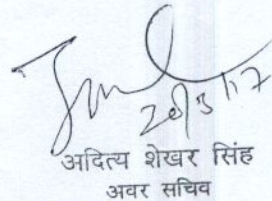 20/3/17
अदित्य शेखर सिंह
अवर सचिव